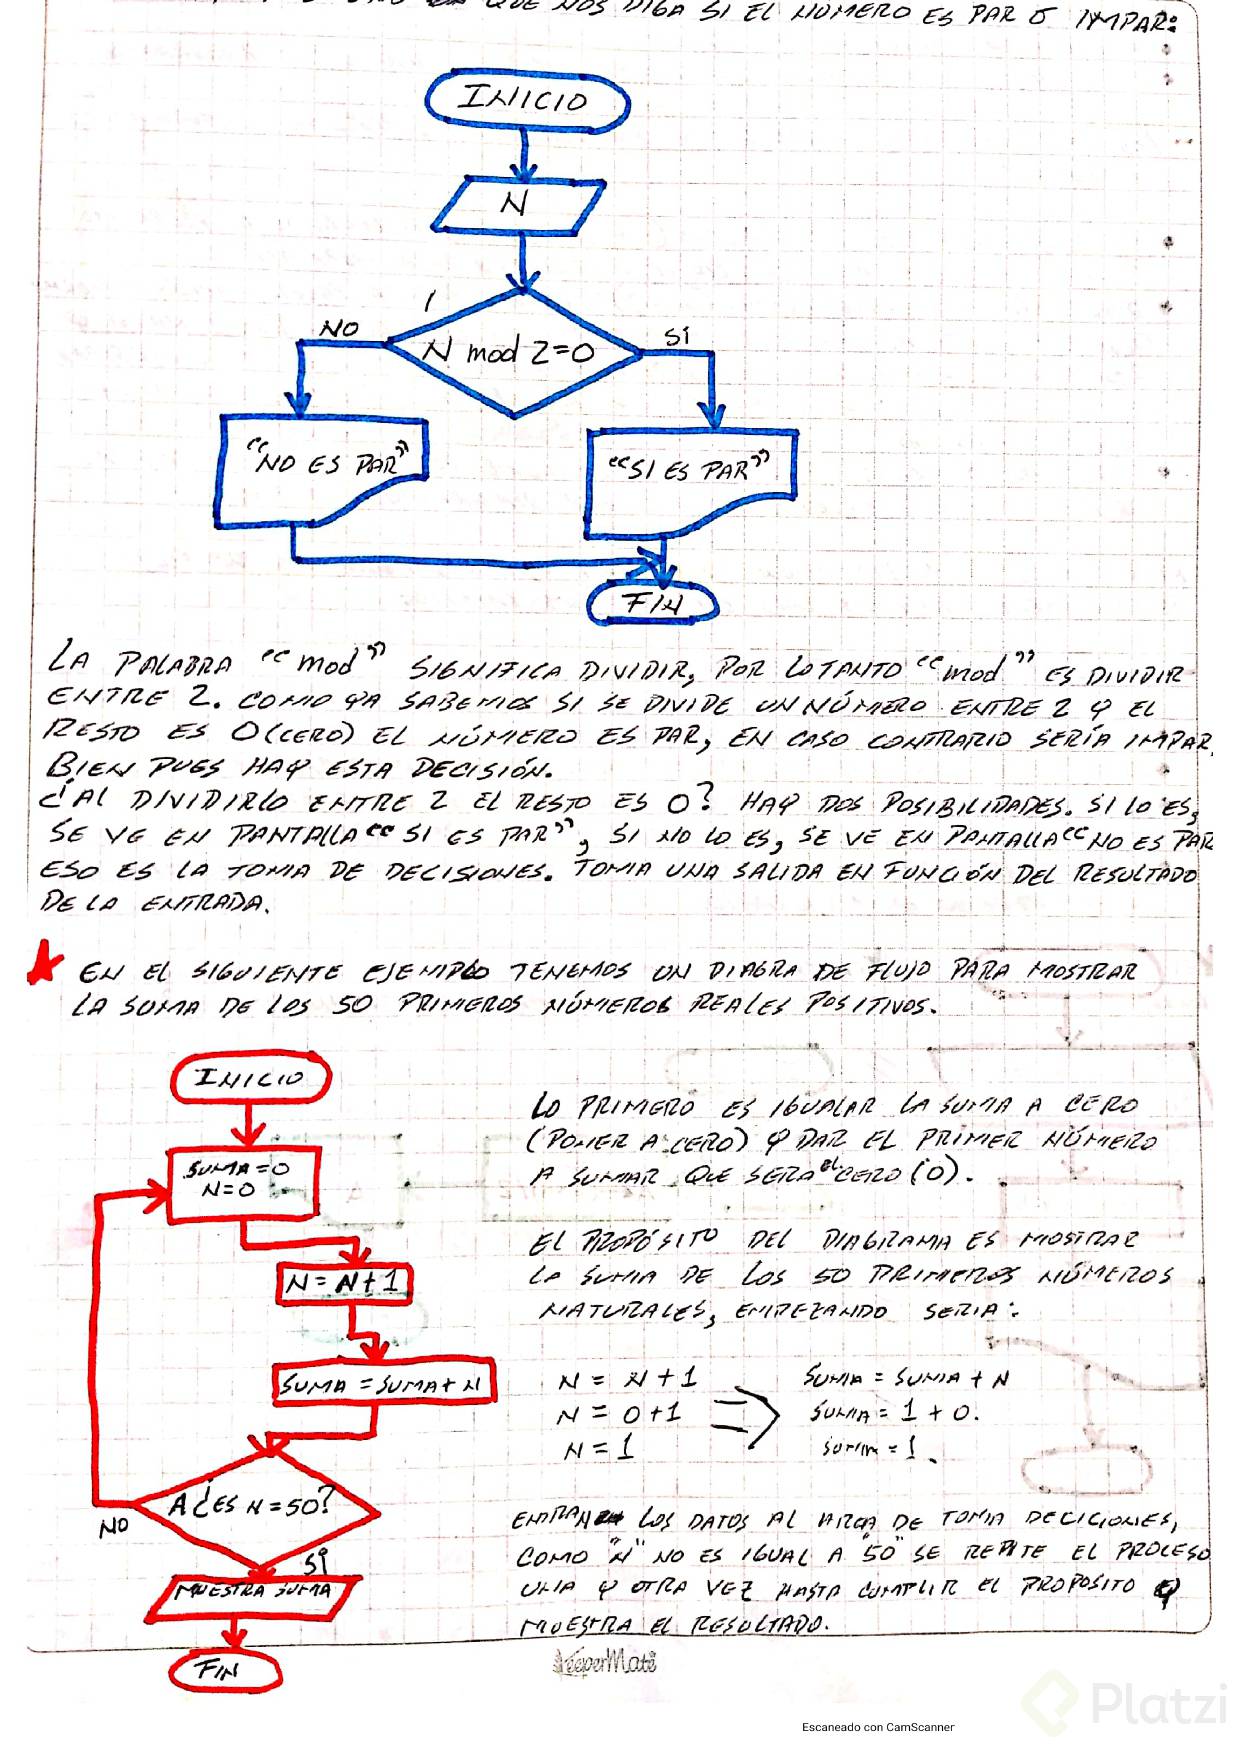 QUE NOS DIGA SI EL NÚMERO ES PAR O IMPAR:
INICIO
N
N mod 2=0
NO
SÍ
"NO ES PAR"
"SI ES PAR"
FIN
LA PALABRA "mod" SIGNIFICA DIVIDIR, POR LO TANTO "mod" ES DIVIDIR
ENTRE 2. COMO YA SABEMOS SI SE DIVIDE UN NÚMERO ENTRE 2 Y EL
RESTO ES 0 (CERO) EL NÚMERO ES PAR, EN CASO CONTRARIO SERÍA IMPAR.
BIEN PUES HAY ESTA DECISIÓN.
¿AL DIVIDIRLO ENTRE 2 EL RESTO ES 0? HAY DOS POSIBILIDADES. SI LO ES,
SE VE EN PANTALLA "SI ES PAR", SI NO LO ES, SE VE EN PANTALLA "NO ES PAR
ESO ES LA TOMA DE DECISIONES. TOMA UNA SALIDA EN FUNCIÓN DEL RESULTADO
DE LA ENTRADA.
EN EL SIGUIENTE EJEMPLO TENEMOS UN DIAGRA DE FLUJO PARA MOSTRAR
LA SUMA DE LOS 50 PRIMEROS NÚMEROS REALES POSITIVOS.
INICIO
SUMA=0
N=0
N=N+1
SUMA=SUMA+N
A ¿ES N=50?
NO
SÍ
MUESTRA SUMA
FIN
LO PRIMERO ES IGUALAR LA SUMA A CERO
(PONER A CERO) Y DAR EL PRIMER NÚMERO
A SUMAR QUE SERA EL CERO (0).
EL PROPÓSITO DEL DIAGRAMA ES MOSTRAR
LA SUMA DE LOS 50 PRIMEROS NÚMEROS
NATURALES, EMPEZANDO SERIA:
N = N+1
N = 0+1
N = 1
SUMA = SUMA + N
SUMA = 1 + 0.
SUMA = 1.
ENTRAN LOS DATOS AL AREA DE TOMA DECICIONES,
COMO "N" NO ES IGUAL A "50" SE REPITE EL PROCESO
UNA Y OTRA VEZ HASTA CUMPLIR EL PROPOSITO Y
MUESTRA EL RESULTADO.
KeeperMate
Platzi
Escaneado con CamScanner